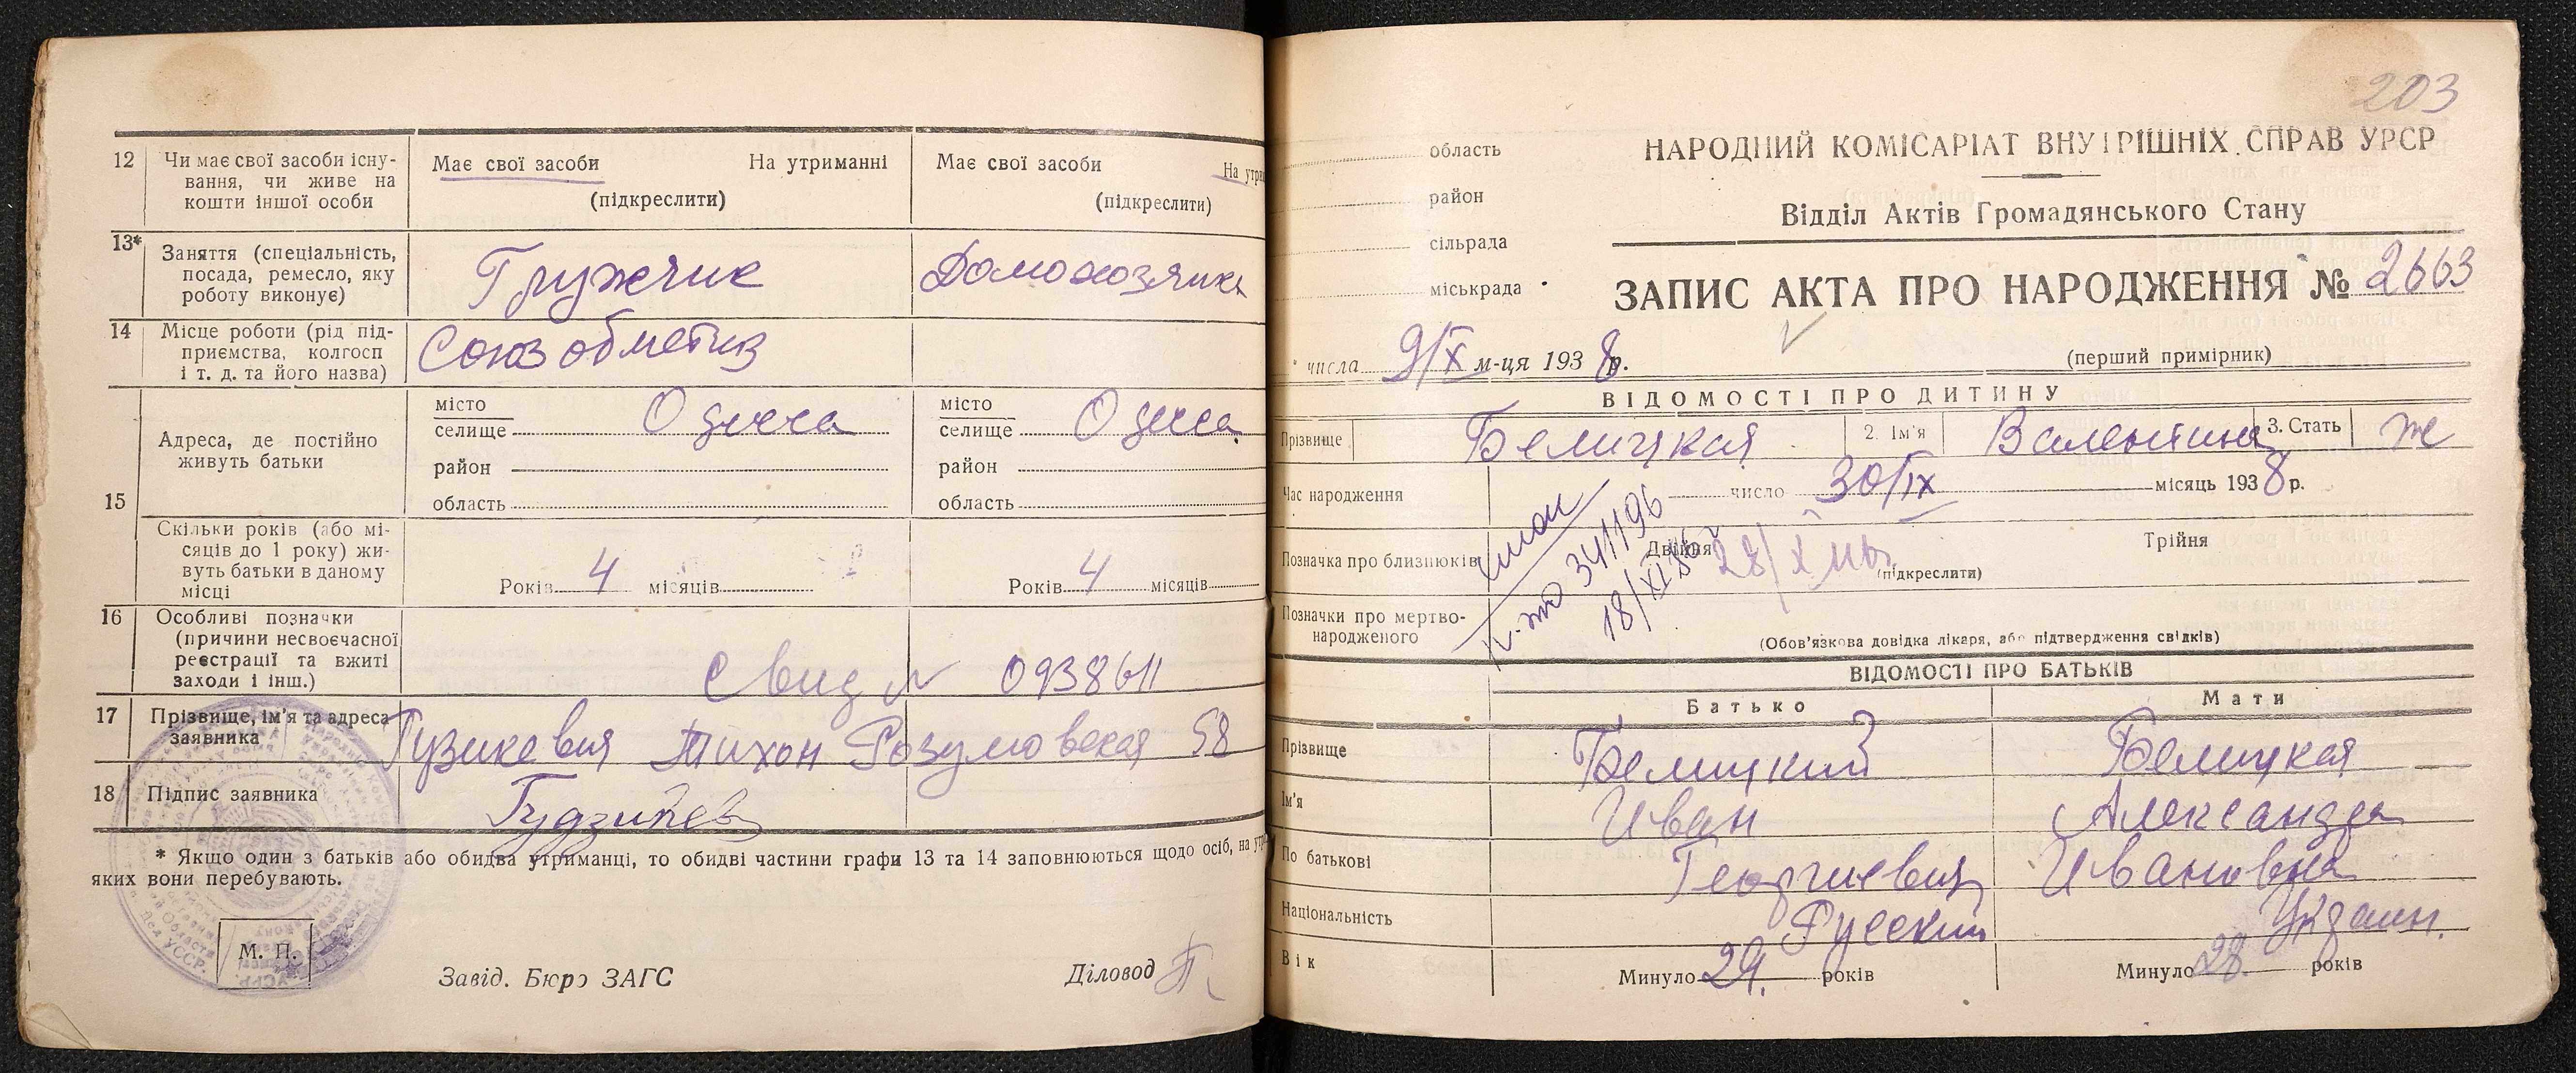 12 Чи має свої засоби існу-
вання, чи живе на
кошти іншої особи
Має свої засоби На утриманні
(підкреслити)
Має свої засоби На утри
(підкреслити)
13* Заняття (спеціальність,
посада, ремесло, яку
роботу виконує)
Гружчик
Домохозяйка
14 Місце роботи (рід під-
приємства, колгосп
і т. д. та його назва)
Союзобметиз
15 Адреса, де постійно
живуть батьки
місто
селище Одесса
район
область
місто
селище Одесса
район
область
Скільки років (або мі-
сяців до 1 року) жи-
вуть батьки в даному
місці
Років 4 місяців
Років 4 місяців
16 Особливі позначки
(причини несвоєчасної
реєстрації та вжиті
заходи і інш.)
Свид № 0938611
17 Прізвище, ім'я та адреса
заявника
Тихон Розумовская 58
18 Підпис заявника
* Якщо один з батьків або обидва утриманці, то обидві частини графи 13 та 14 заповнюються щодо осіб, на
яких вони перебувають.
М. П.
Завід. Бюро ЗАГС Діловод
203
область
район
сільрада
міськрада
НАРОДНИЙ КОМІСАРІАТ ВНУТРІШНІХ СПРАВ УРСР
Відділ Актів Громадянського Стану
ЗАПИС АКТА ПРО НАРОДЖЕННЯ № 2663
числа 9/X м-ця 1938 р.
(перший примірник)
ВІДОМОСТІ ПРО ДИТИНУ
Прізвище Белицкая 2. Ім'я Валентина 3. Стать ж
Час народження число 30/IX місяць 1938 р.
Позначка про близнюків Двійня Трійня
(підкреслити)
341196
18/XI
28/X
Позначки про мертво-
народженого
(Обов'язкова довідка лікаря, або підтвердження свідків)
ВІДОМОСТІ ПРО БАТЬКІВ
Батько Мати
Прізвище Белицкий Белицкая
Ім'я Иван Александра
По батькові Георгиевич Ивановна
Національність Русский Украин.
Вік Минуло 29. років Минуло 28. років